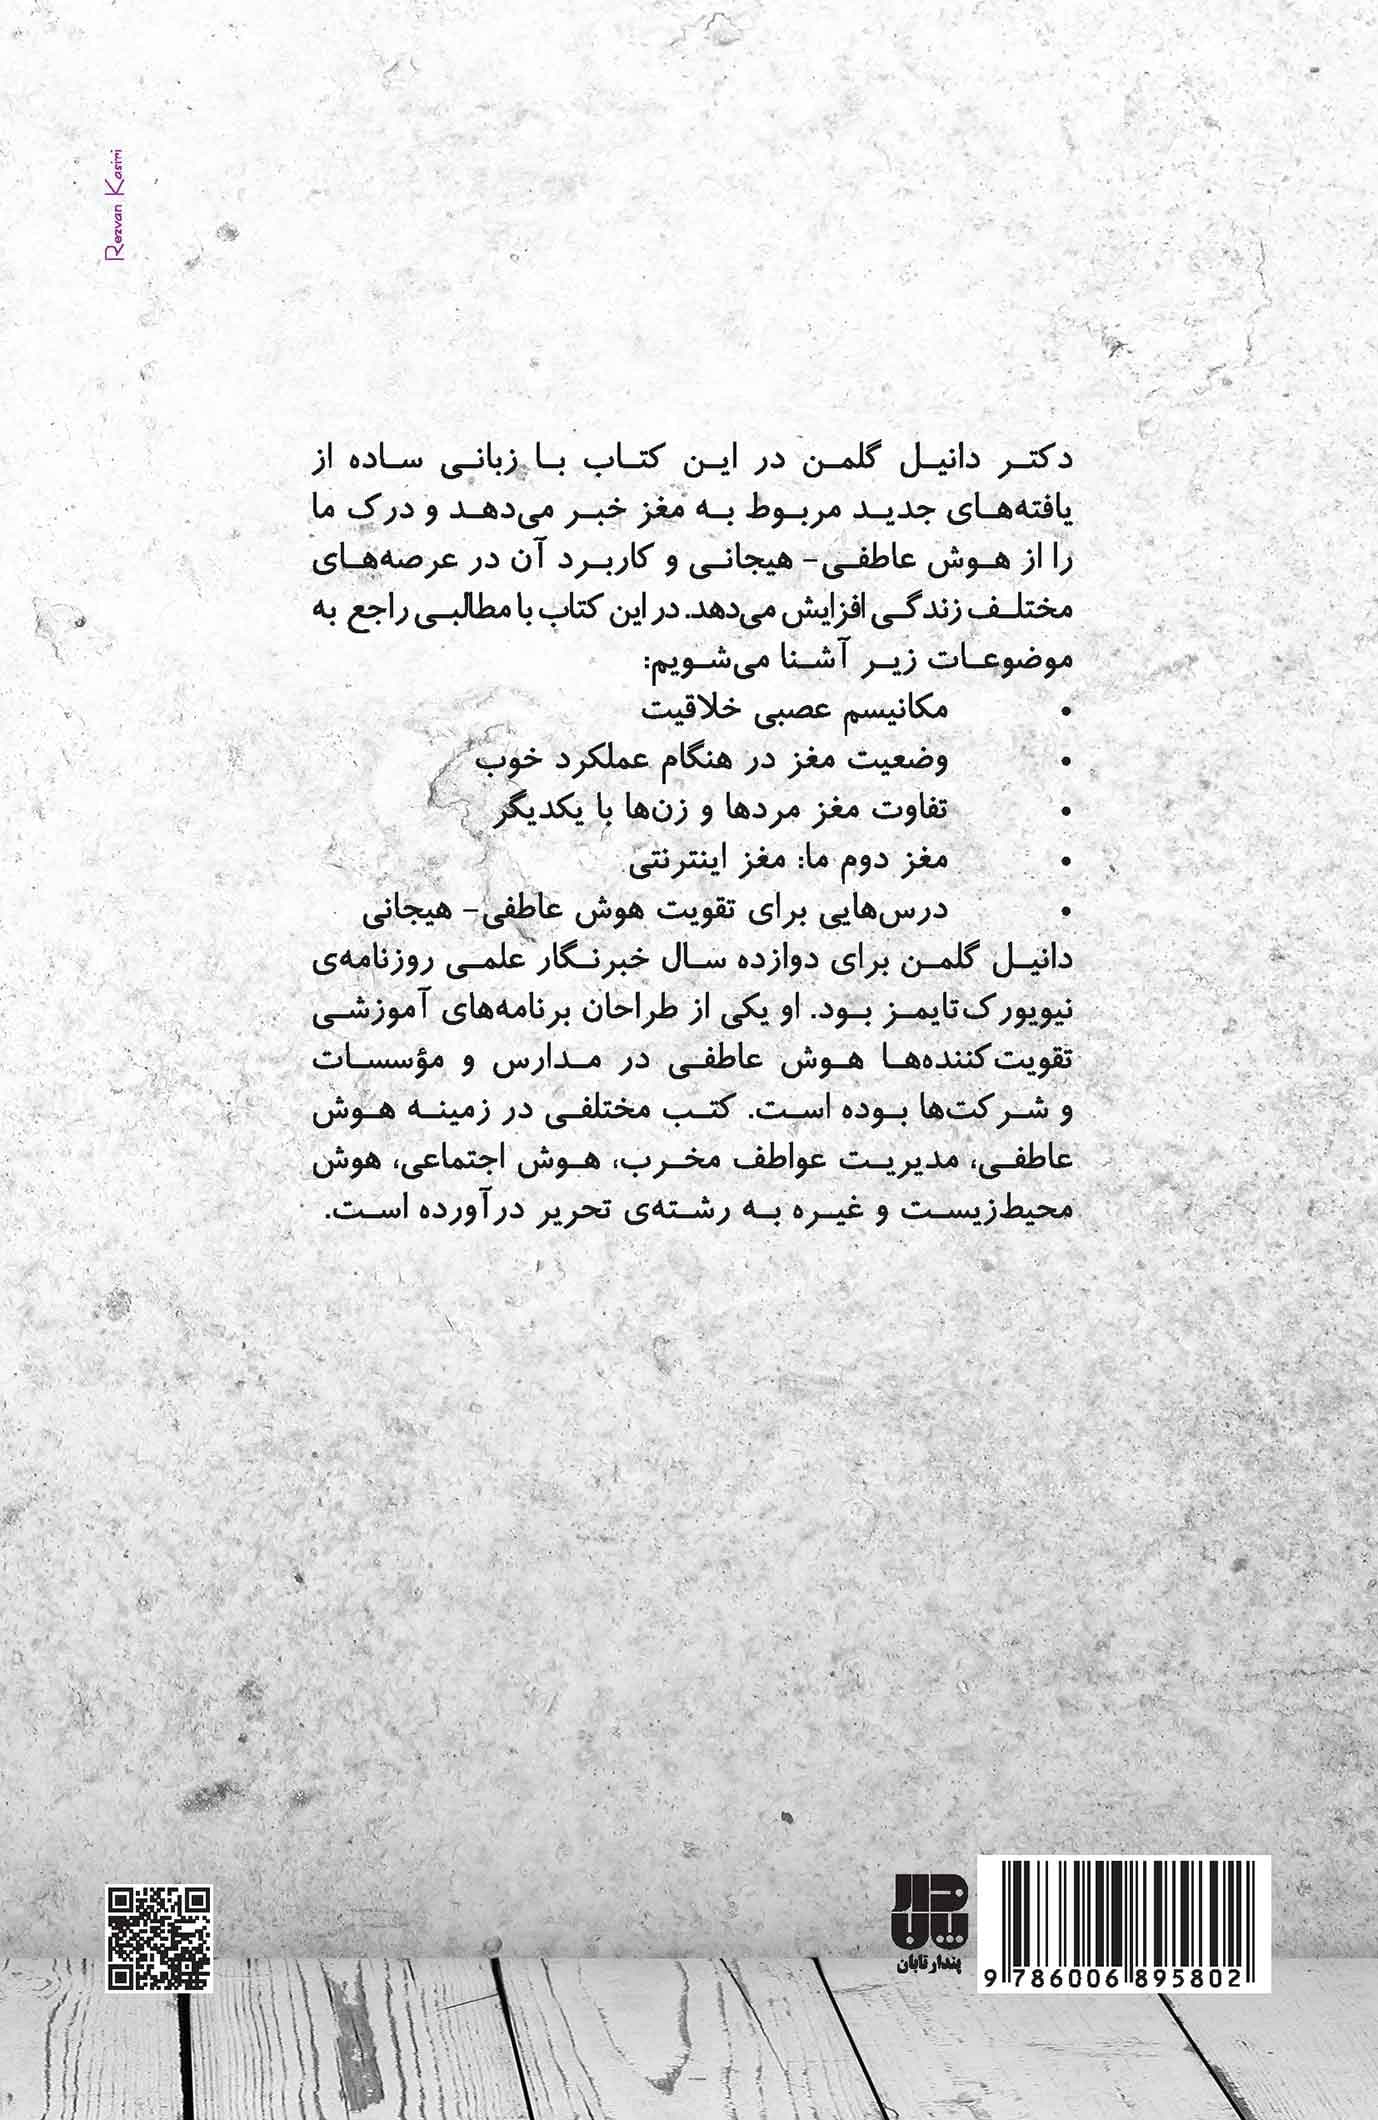 Rezvan Kasiri
دکتر دانیل گلمن در این کتاب با زبانی ساده از
یافته‌های جدید مربوط به مغز خبر می‌دهد و درک ما
را از هوش عاطفی- هیجانی و کاربرد آن در عرصه‌های
مختلف زندگی افزایش می‌دهد. در این کتاب با مطالبی راجع به
موضوعات زیر آشنا می‌شویم:
• مکانیسم عصبی خلاقیت
• وضعیت مغز در هنگام عملکرد خوب
• تفاوت مغز مردها و زن‌ها با یکدیگر
• مغز دوم ما: مغز اینترنتی
• درس‌هایی برای تقویت هوش عاطفی- هیجانی
دانیل گلمن برای دوازده سال خبرنگار علمی روزنامه‌ی
نیویورک‌تایمز بود. او یکی از طراحان برنامه‌های آموزشی
تقویت‌کننده‌ها هوش عاطفی در مدارس و مؤسسات
و شرکت‌ها بوده است. کتب مختلفی در زمینه هوش
عاطفی، مدیریت عواطف مخرب، هوش اجتماعی، هوش
محیط‌زیست و غیره به رشته‌ی تحریر درآورده است.
پندار تابان
9 786006 895802